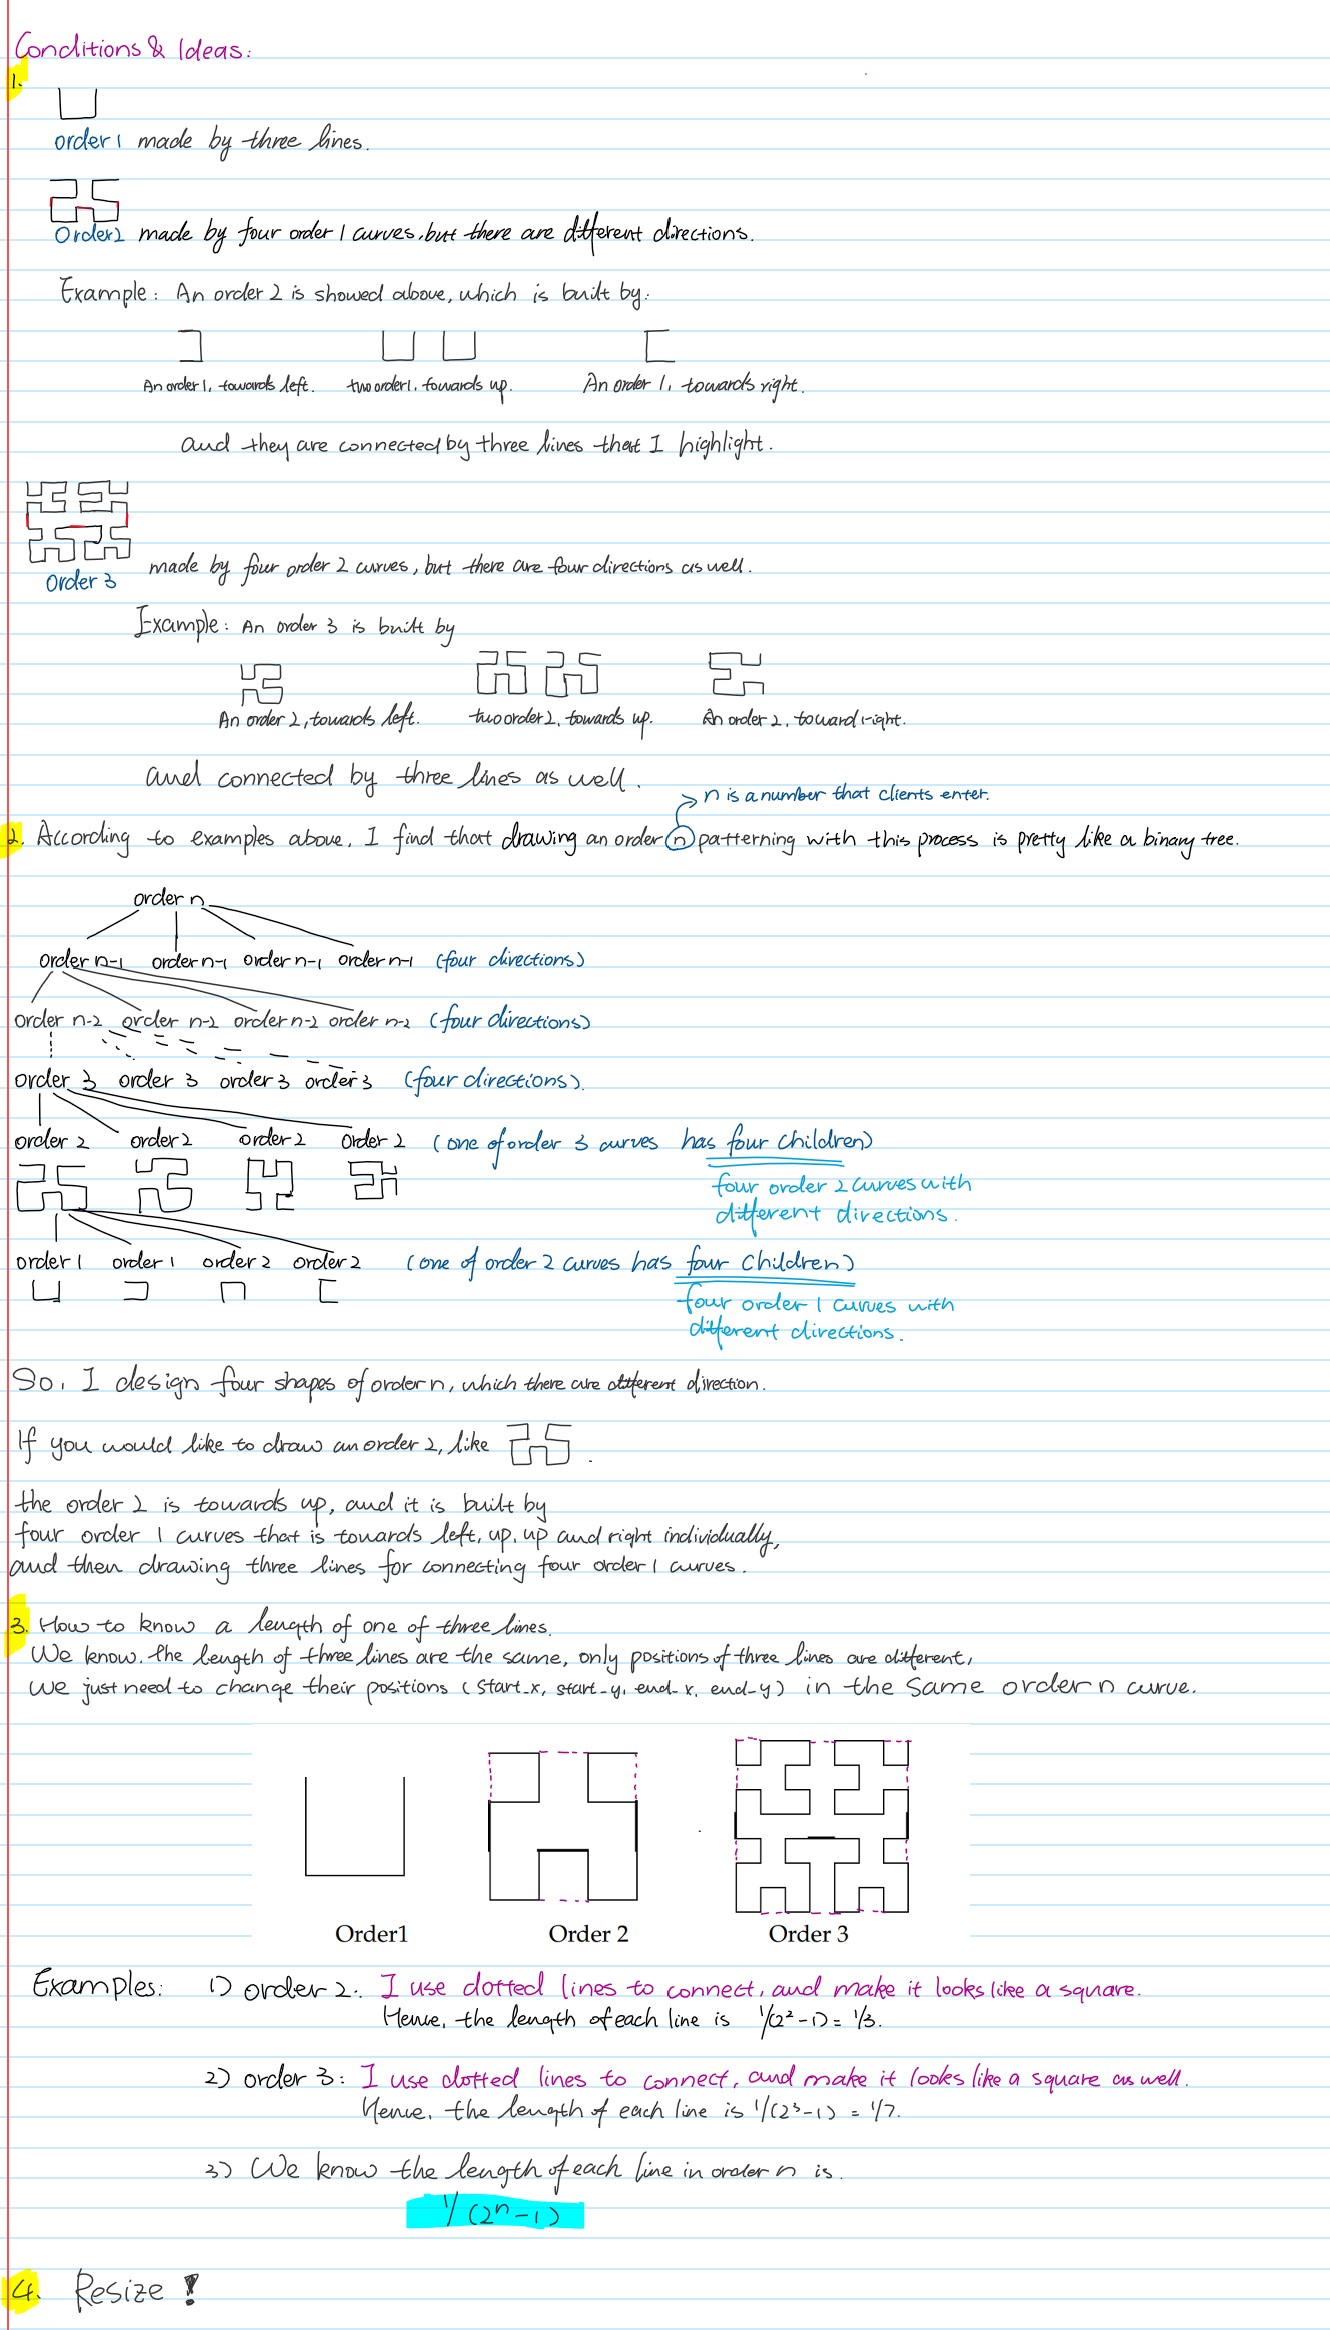 Conditions & Ideas:
1.
order 1 made by three lines.
Order2 made by four order 1 curves, but there are different directions.
Example: An order 2 is showed above, which is built by:
An order 1, towards left. two order 1, towards up. An order 1, towards right.
and they are connected by three lines that I highlight.
made by four order 2 curves, but there are four directions as well.
Order 3
Example: An order 3 is built by
An order 2, towards left. two order 2, towards up. An order 2, toward right.
and connected by three lines as well.
n is a number that clients enter.
2. According to examples above, I find that drawing an order n patterning with this process is pretty like a binary tree.
order n
order n-1 order n-1 order n-1 order n-1 (four directions)
order n-2 order n-2 order n-2 order n-2 (four directions)
order 3 order 3 order 3 order 3 (four directions).
order 2 order 2 order 2 order 2 (one of order 3 curves has four children)
four order 2 curves with
different directions.
order 1 order 1 order 2 order 2 (one of order 2 curves has four children)
four order 1 curves with
different directions.
So, I design four shapes of order n, which there are different direction.
If you would like to draw an order 2, like .
the order 2 is towards up, and it is built by
four order 1 curves that is towards left, up, up and right individually,
and then drawing three lines for connecting four order 1 curves.
3. How to know a length of one of three lines.
We know. the length of three lines are the same, only positions of three lines are different,
we just need to change their positions (start-x, start-y, end-x, end-y) in the same order n curve.
Order1 Order 2 Order 3
Examples: 1) order 2: I use dotted lines to connect, and make it looks like a square.
Hence, the length of each line is 1/(2²-1) = 1/3.
2) order 3: I use dotted lines to connect, and make it looks like a square as well.
Hence, the length of each line is 1/(2³-1) = 1/7.
3) We know the length of each line in order n is.
1/(2ⁿ-1)
4. Resize!